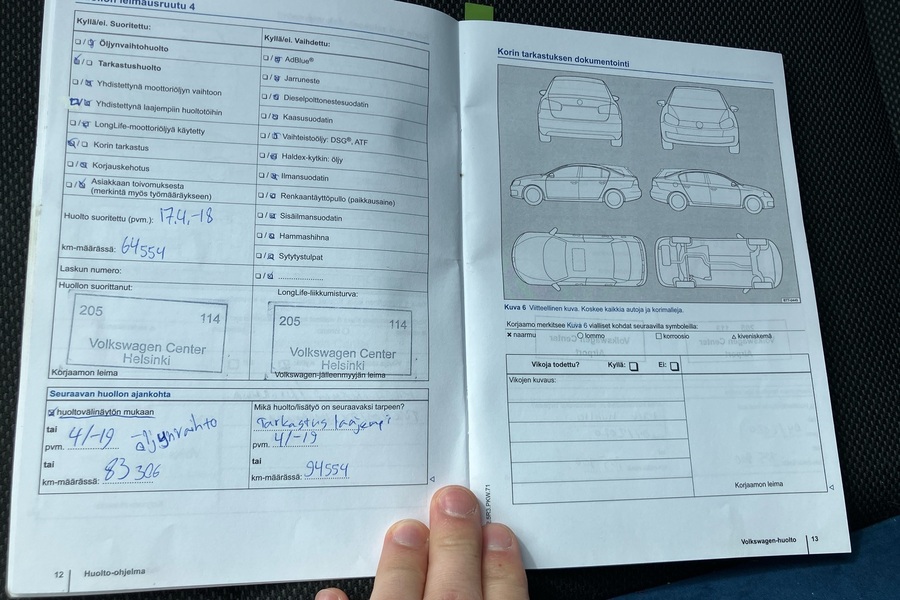 leimausruutu 4
Kyllä/ei. Suoritettu:
❏/❏ Öljynvaihtohuolto
❏/❏ Tarkastushuolto
❏/❏ Yhdistettynä moottoriöljyn vaihtoon
❏/❏ Yhdistettynä laajempiin huoltotöihin
❏/❏ LongLife-moottoriöljyä käytetty
❏/❏ Korin tarkastus
❏/❏ Korjauskehotus
❏/❏ Asiakkaan toivomuksesta
(merkintä myös työmääräykseen)
Huolto suoritettu (pvm.): 17.4.-18
km-määrässä: 64554
Laskun numero:
Huollon suorittanut:
205 114
Volkswagen Center
Helsinki
Korjaamon leima
Kyllä/ei. Vaihdettu:
❏/❏ AdBlue®
❏/❏ Jarruneste
❏/❏ Dieselpolttonestesuodatin
❏/❏ Kaasusuodatin
❏/❏ Vaihteistoöljy: DSG®, ATF
❏/❏ Haldex-kytkin: öljy
❏/❏ Ilmansuodatin
❏/❏ Renkaantäyttöpullo (paikkausaine)
❏/❏ Sisäilmansuodatin
❏/❏ Hammashihna
❏/❏ Sytytystulpat
❏/❏ ..............
LongLife-liikkumisturva:
205 114
Volkswagen Center
Helsinki
Volkswagen-jälleenmyyjän leima
Seuraavan huollon ajankohta
❏ huoltovälinäytön mukaan
tai
pvm. 4/-19 öljynvaihto
tai
km-määrässä: 83306
Mikä huolto/lisätyö on seuraavaksi tarpeen?
Tarkastus laajempi
pvm. 4/-19
tai
km-määrässä: 94554
12 Huolto-ohjelma
Korin tarkastuksen dokumentointi
Kuva 6 Viitteellinen kuva. Koskee kaikkia autoja ja korimalleja.
Korjaamo merkitsee Kuva 6 vialliset kohdat seuraavilla symboleilla:
× naarmu ○ lommo □ korroosio △ kiveniskemä
Vikoja todettu? Kyllä: ❏ Ei: ❏
Vikojen kuvaus:
Korjaamon leima
Volkswagen-huolto 13